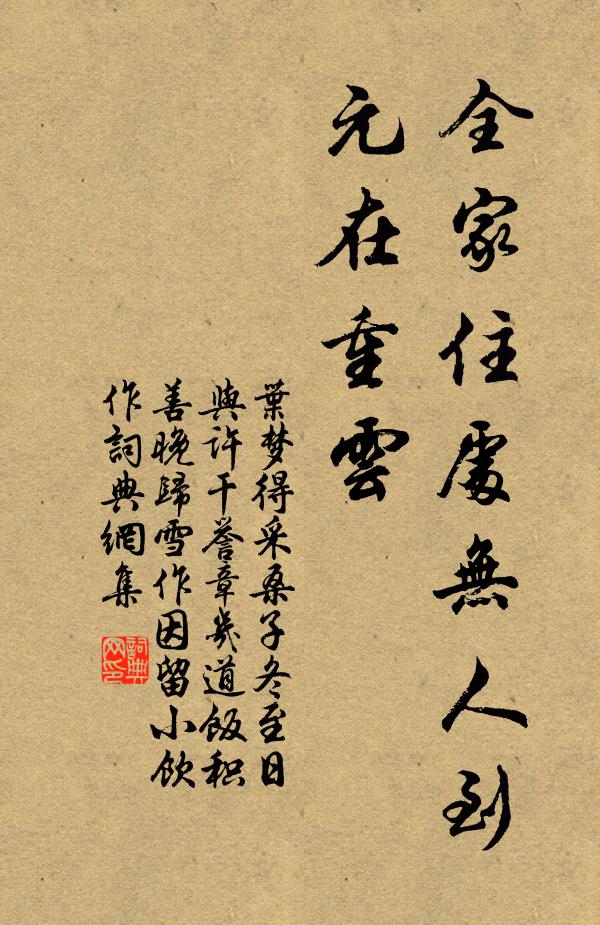 全家住處無人到
元在重雲
葉梦得采桑子冬至日
與許干譽章幾道飯积
善晚歸雪作因留小飲
作詞典網集
詞典
网印